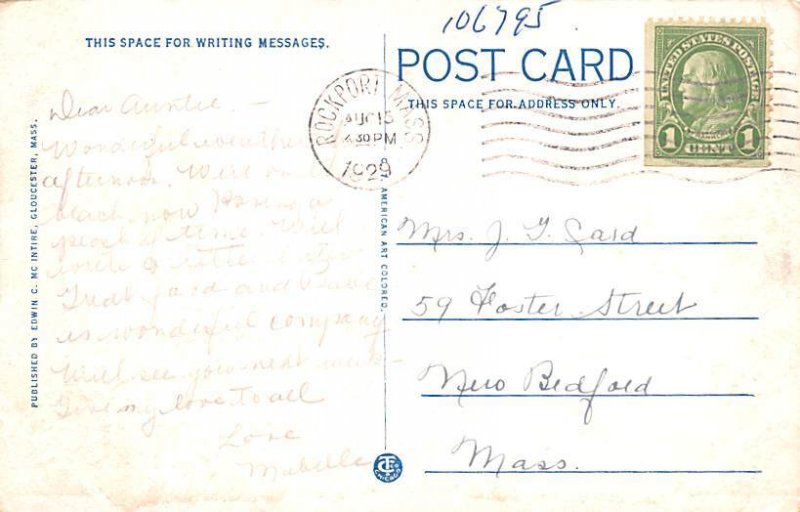 106795
THIS SPACE FOR WRITING MESSAGES.
POST CARD
THIS SPACE FOR ADDRESS ONLY.
UNITED STATES POSTAGE
FRANKLIN
1 CENT 1
ROCKPORT MASS
AUG 15
4 30 PM
1929
Dear Auntie, —
Wonderful weather
afternoon. We're on
beach now Having a
peach of time. Will
write a letter later
Treat good and
is wonderful company
Will see you next week —
Give my love to all
Love
Mabelle
Mrs. J. T. Card
59 Foster Street
New Bedford
Mass.
PUBLISHED BY EDWIN C. MC INTIRE, GLOUCESTER, MASS.
AMERICAN ART COLORED.
CHICAGO